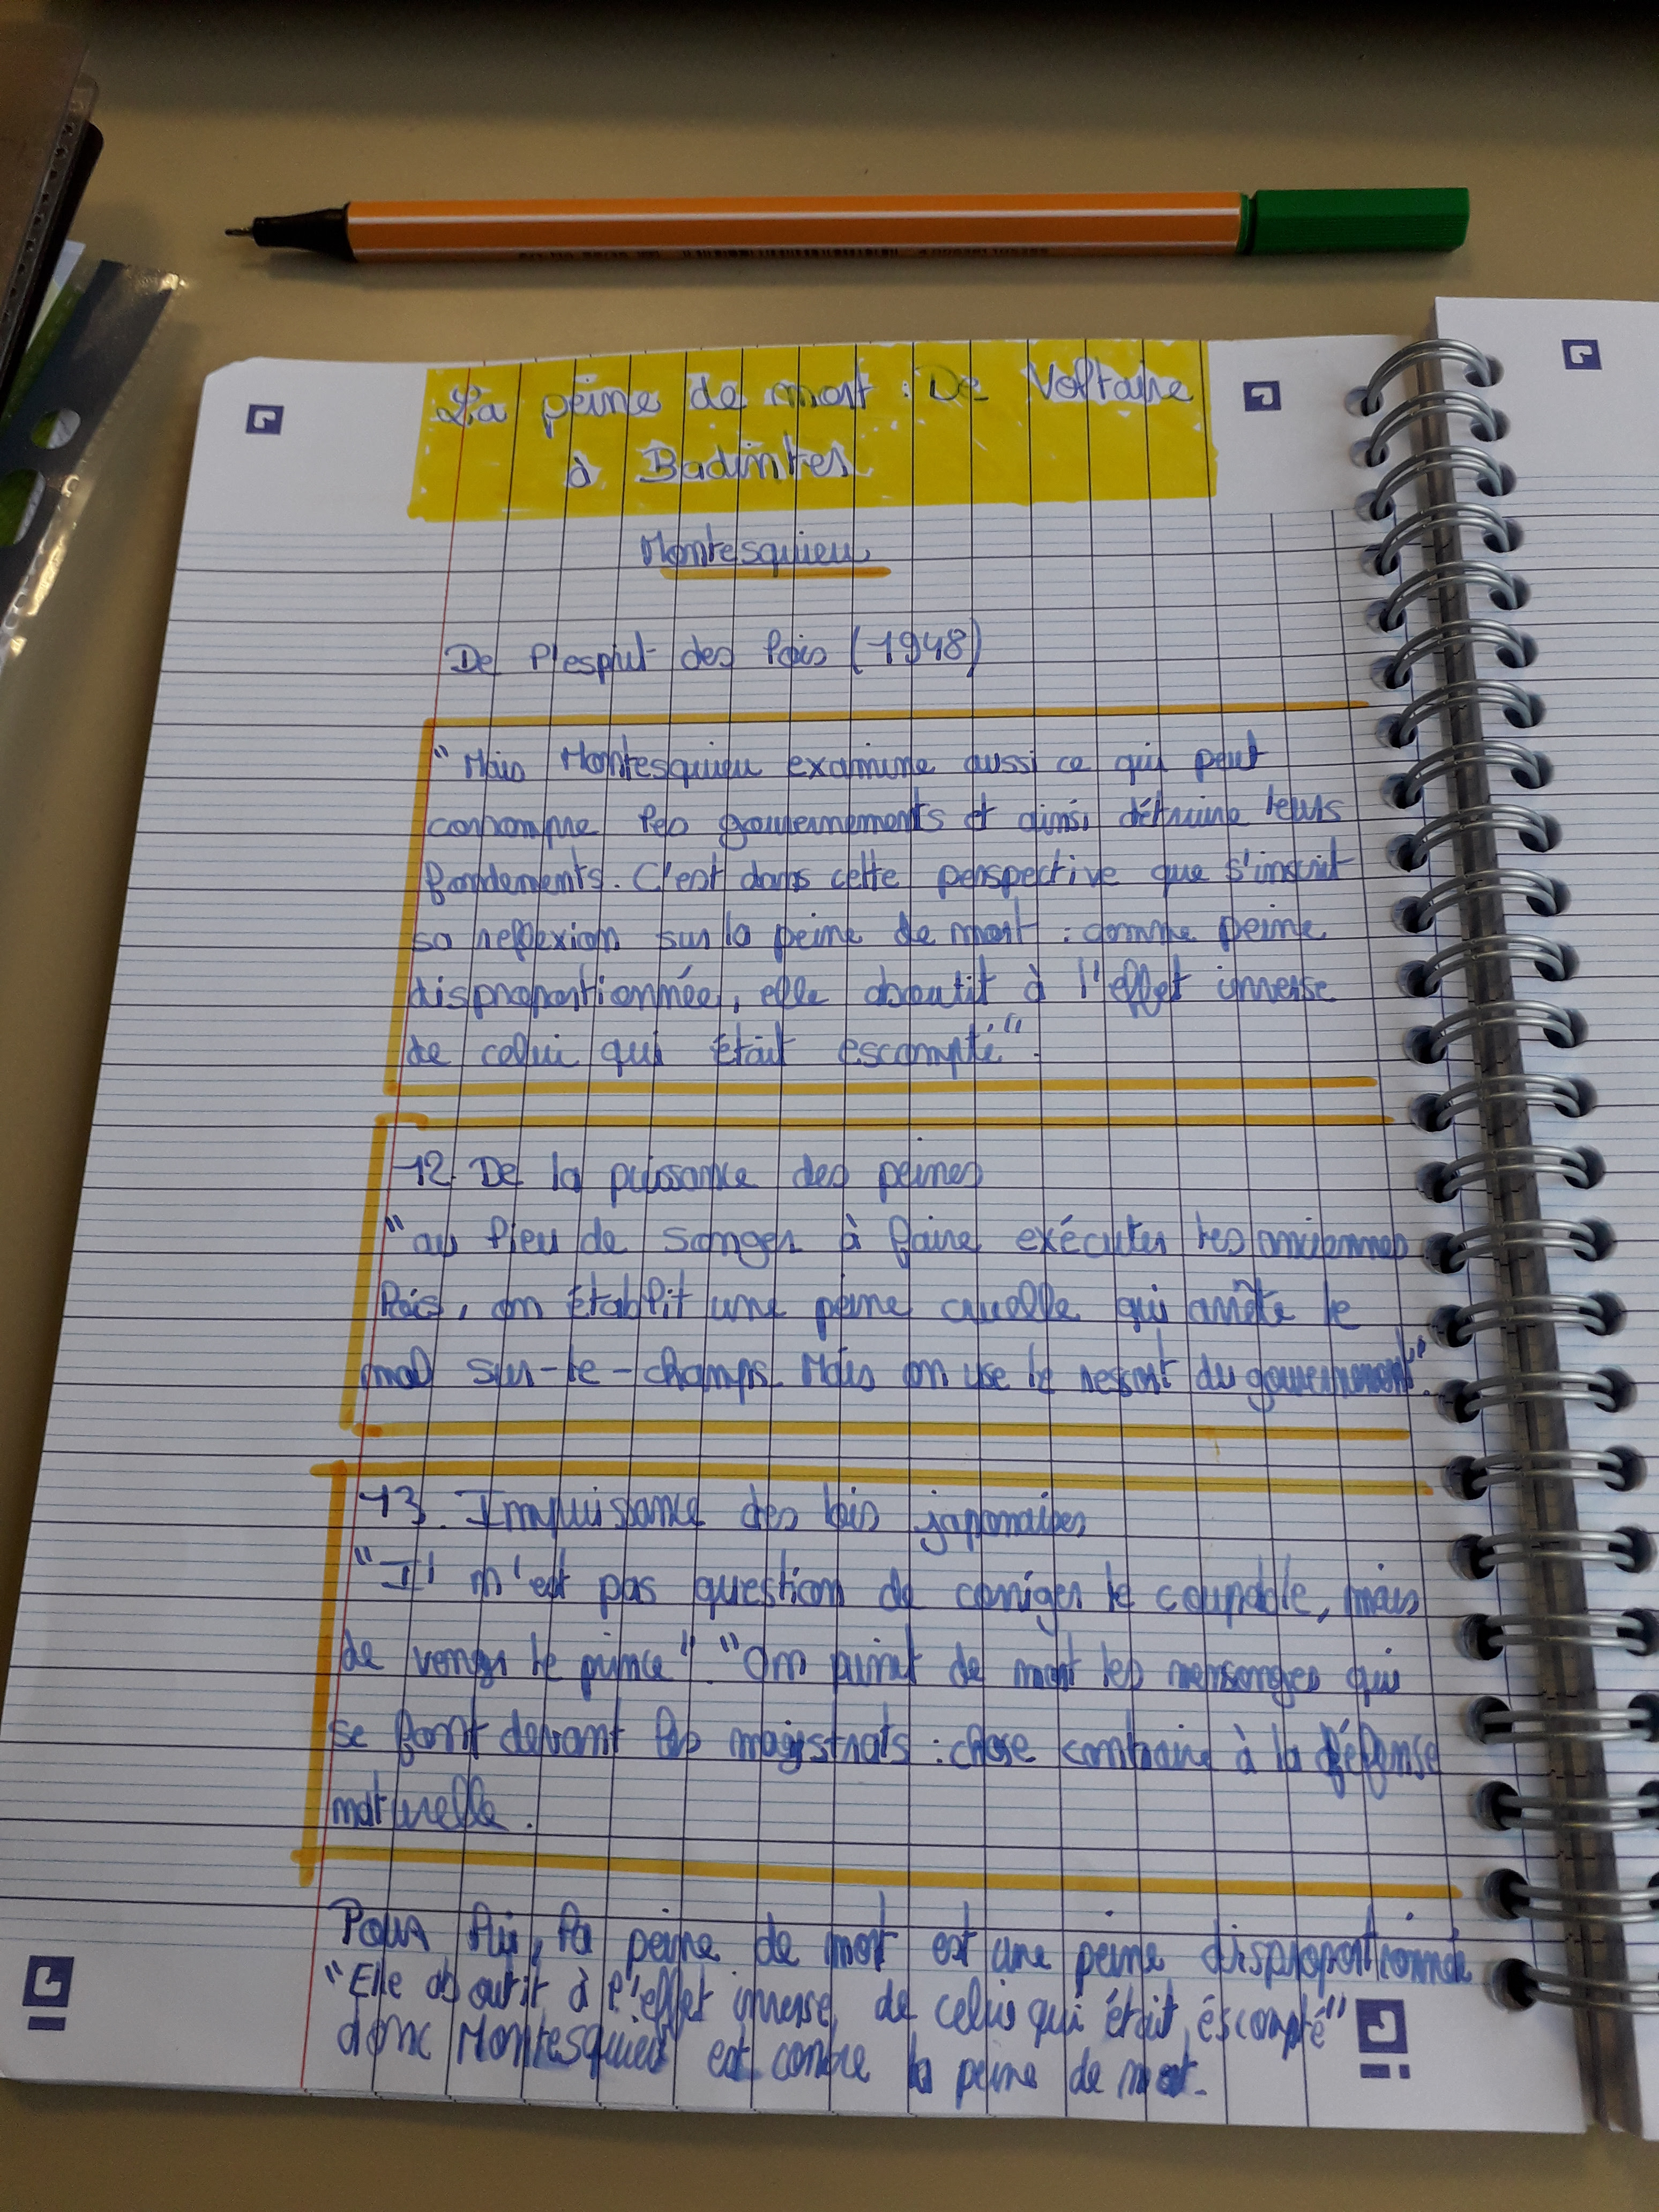 La peine de mort : De Voltaire
à Badinter
Montesquieu
De l'esprit des lois (1948)
"Mais Montesquieu examine aussi ce qui peut
corrompre les gouvernements et ainsi détruire leurs
fondements. C'est dans cette perspective que s'inscrit
sa reflexion sur la peine de mort : comme peine
disproportionnée, elle aboutit à l'effet inverse
de celui qui était escompté".
12. De la puissance des peines
"au lieu de songer à faire exécuter les anciennes
lois, on établit une peine cruelle qui arrête le
mal sur-le-champs. Mais on use le ressort du gouvernement".
13. Impuissance des lois japonaises
"Il n'est pas question de corriger le coupable, mais
de venger le prince" "On punit de mort les mensonges qui
se font devant les magistrats : chose contraire à la défense
naturelle.
Pour lui, la peine de mort est une peine disproportionnée
"Elle aboutit à l'effet inverse de celui qui était éscompté"
donc Montesquieu est contre la peine de mort.